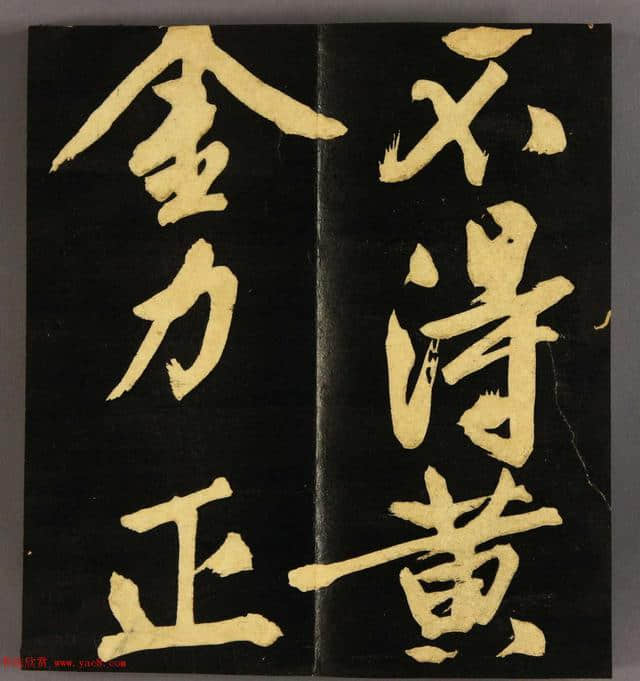 不得黄
金力正
www.yac8.com